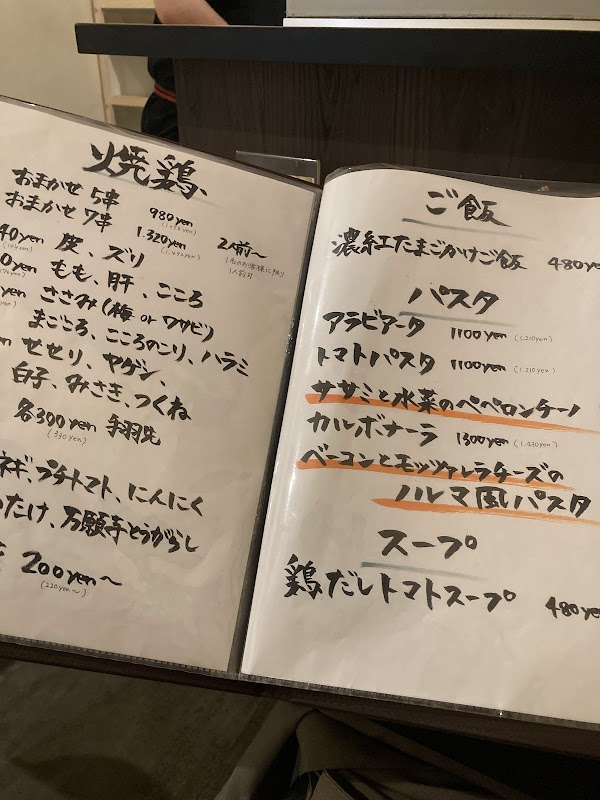 焼鶏
おまかせ 5串 980yen
おまかせ 7串 1.320yen 2人前〜
1名のお客様に限り
1人前可
40yen 皮、ズリ
0yen もも、肝、こころ
yen ささみ(梅 or ワサビ)
まごころ、こころのこり、ハラミ
せせり、ヤゲン、
白子、みさき、つくね
各300yen 手羽先
(330yen)
ネギ、プチトマト、にんにく
たけ、万願寺とうがらし
200yen〜
(220yen〜)
ご飯
濃紅たまごかけご飯 480ye
パスタ
アラビアータ 1100yen (1.210yen)
トマトパスタ 1100yen (1.210yen)
ササミと水菜のペペロンチーノ
カルボナーラ 1300yen (1.430yen)
ベーコンとモッツァレラチーズの
ノルマ風パスタ
スープ
鶏だしトマトスープ 480ye